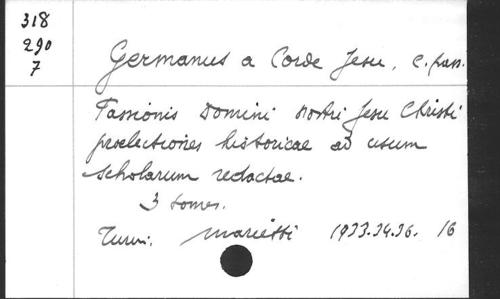 318
290
7
Germanus a Corde Jesu, c. pass.
Passionis Domini nostri Jesu Christi
praelectiones historicae ad usum
scholarum redactae.
3 tomes.
Turin: Marietti 1933.34.36. 16